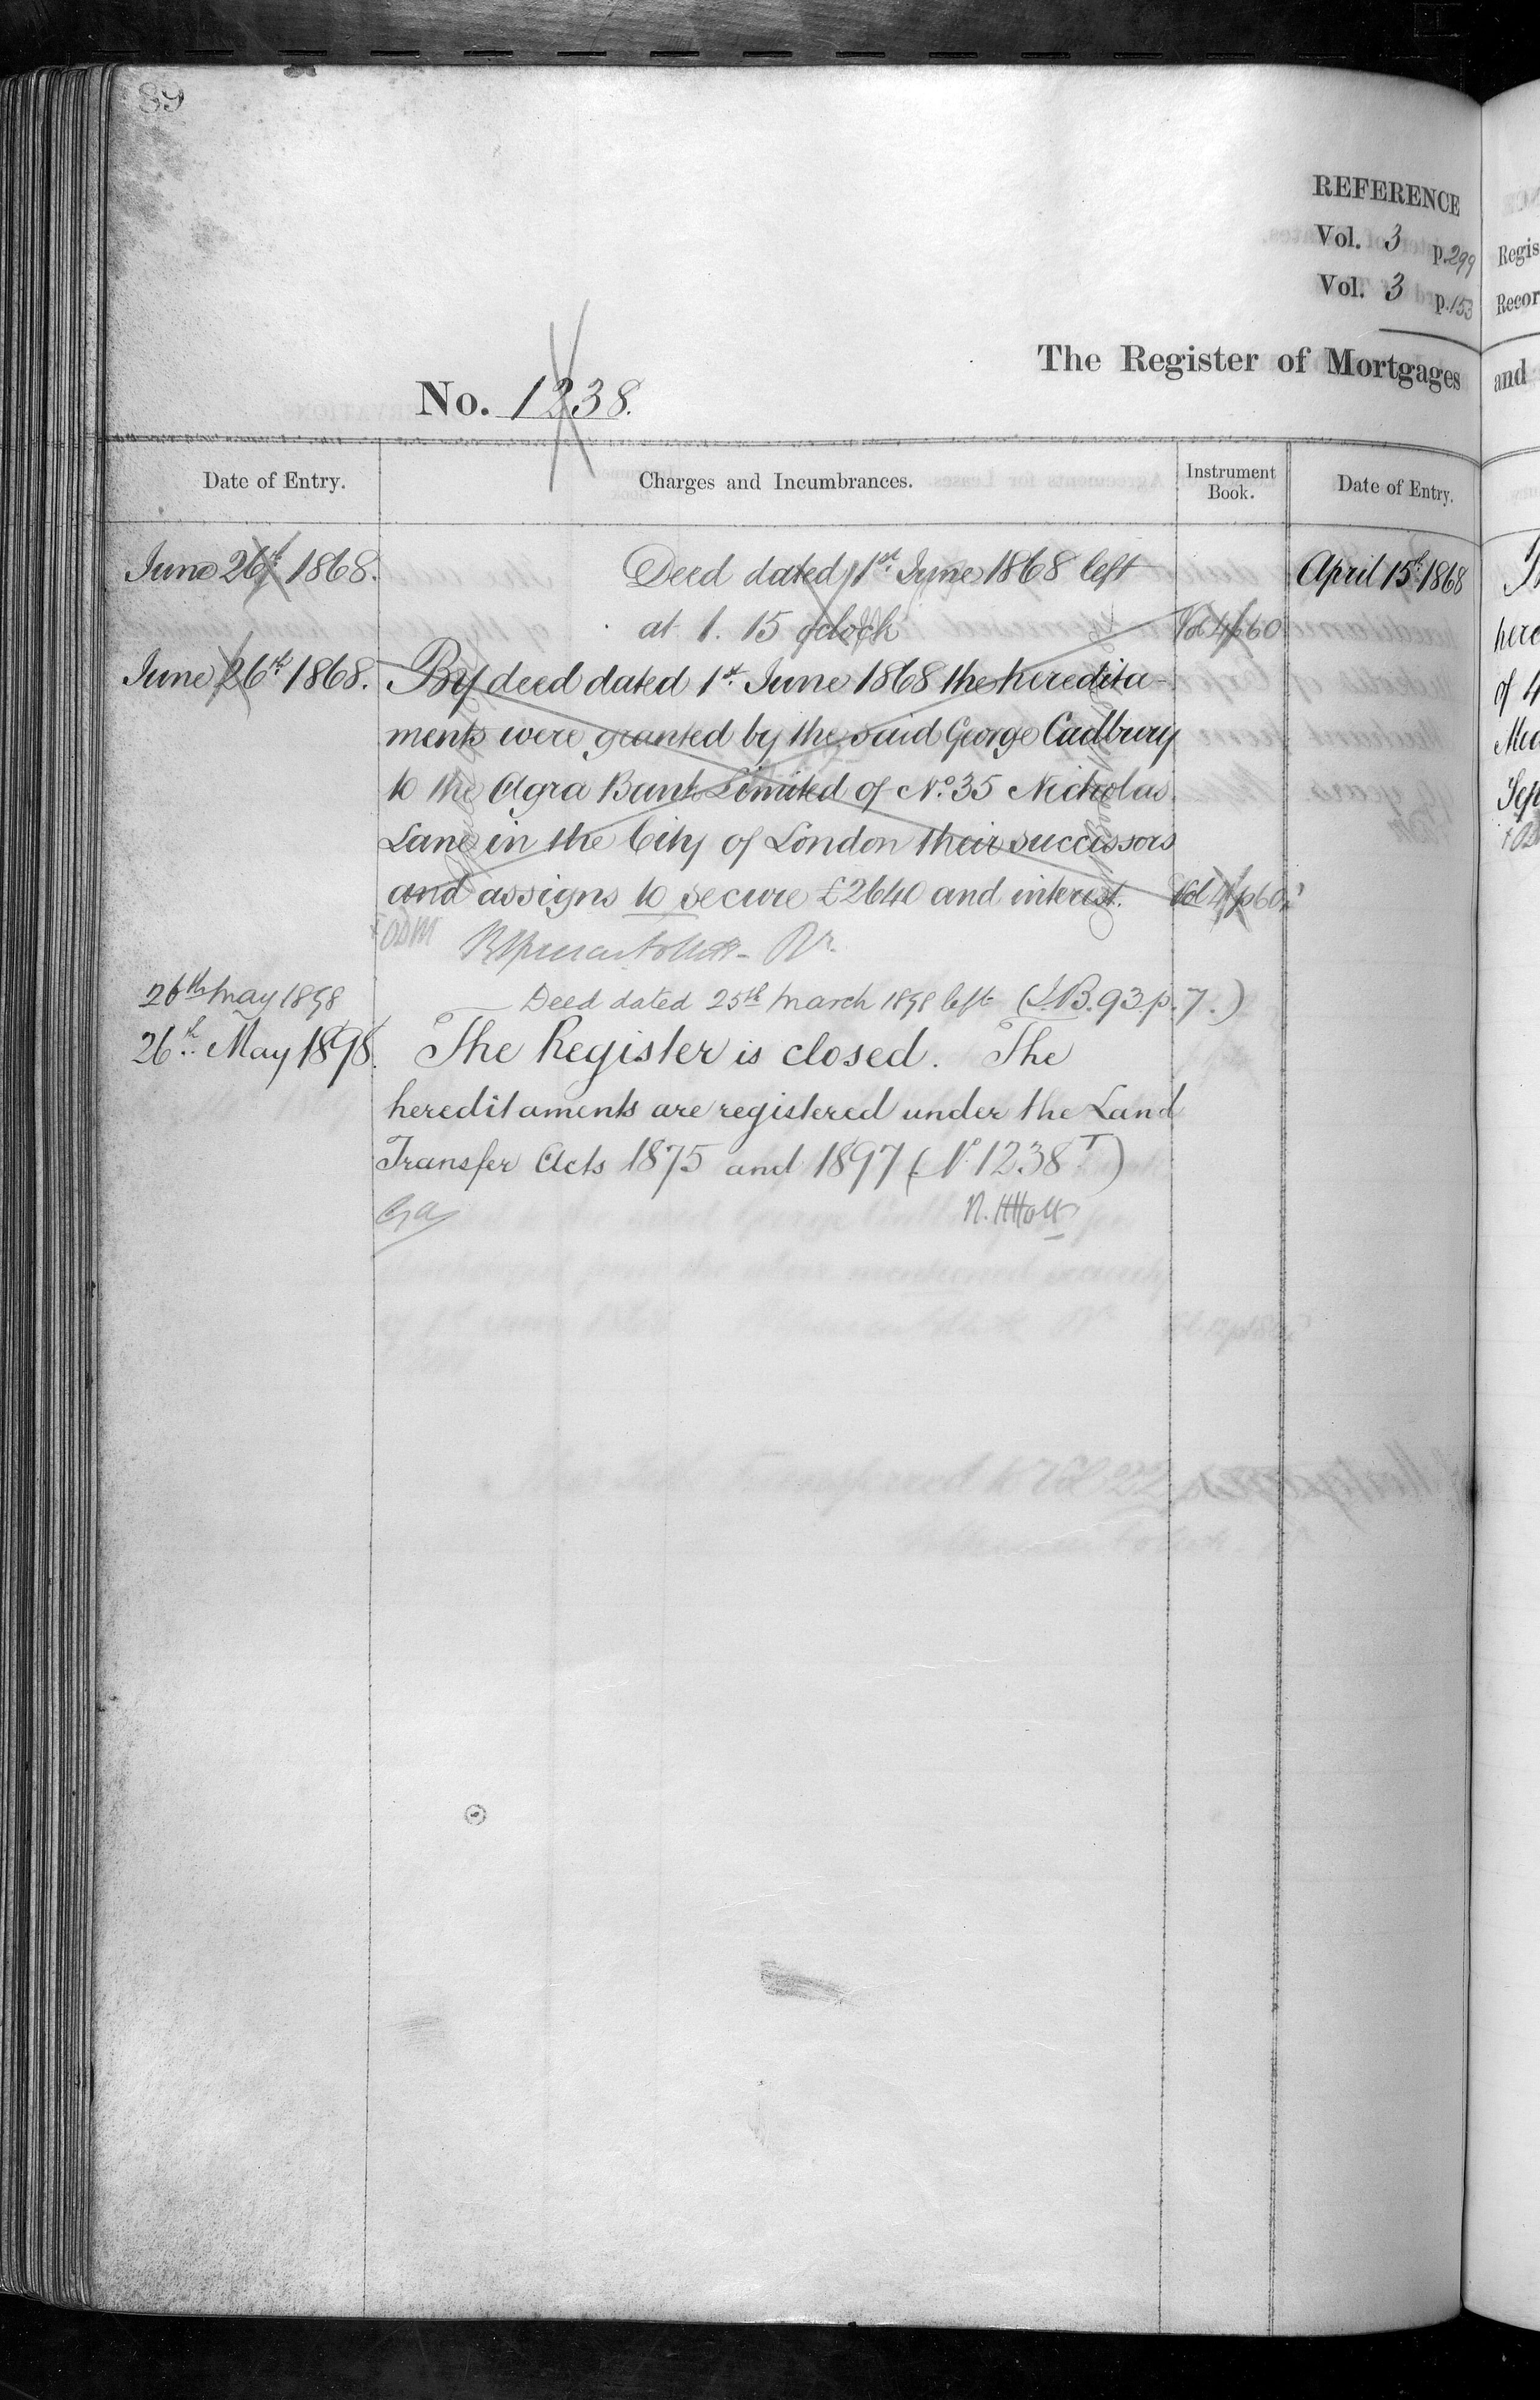 89
REFERENCE
Vol. 3 p. 299
Vol. 3 p. 153
The Register of Mortgages
No. 1238.
Date of Entry. Charges and Incumbrances. Instrument Book. Date of Entry.
June 26th 1868. Deed dated 1st June 1868 left April 15th 1868
at 1. 15 oclock Vol 4 p 60
June 26th 1868. By deed dated 1st June 1868 the heredita-
ments were granted by the said George Cadbury
to the Agra Bank Limited of No. 35 Nicholas
Lane in the City of London their successors
and assigns to secure £2640 and interest. Vol 4 p 60
26th May 1898 Deed dated 25th March 1898 left (I.B. 93. p. 7.)
26th May 1898. The Register is closed. The
hereditaments are registered under the Land
Transfer Acts 1875 and 1897 (No. 1238 T)
N. H Holt
Regis
Recor
and
here
of 4